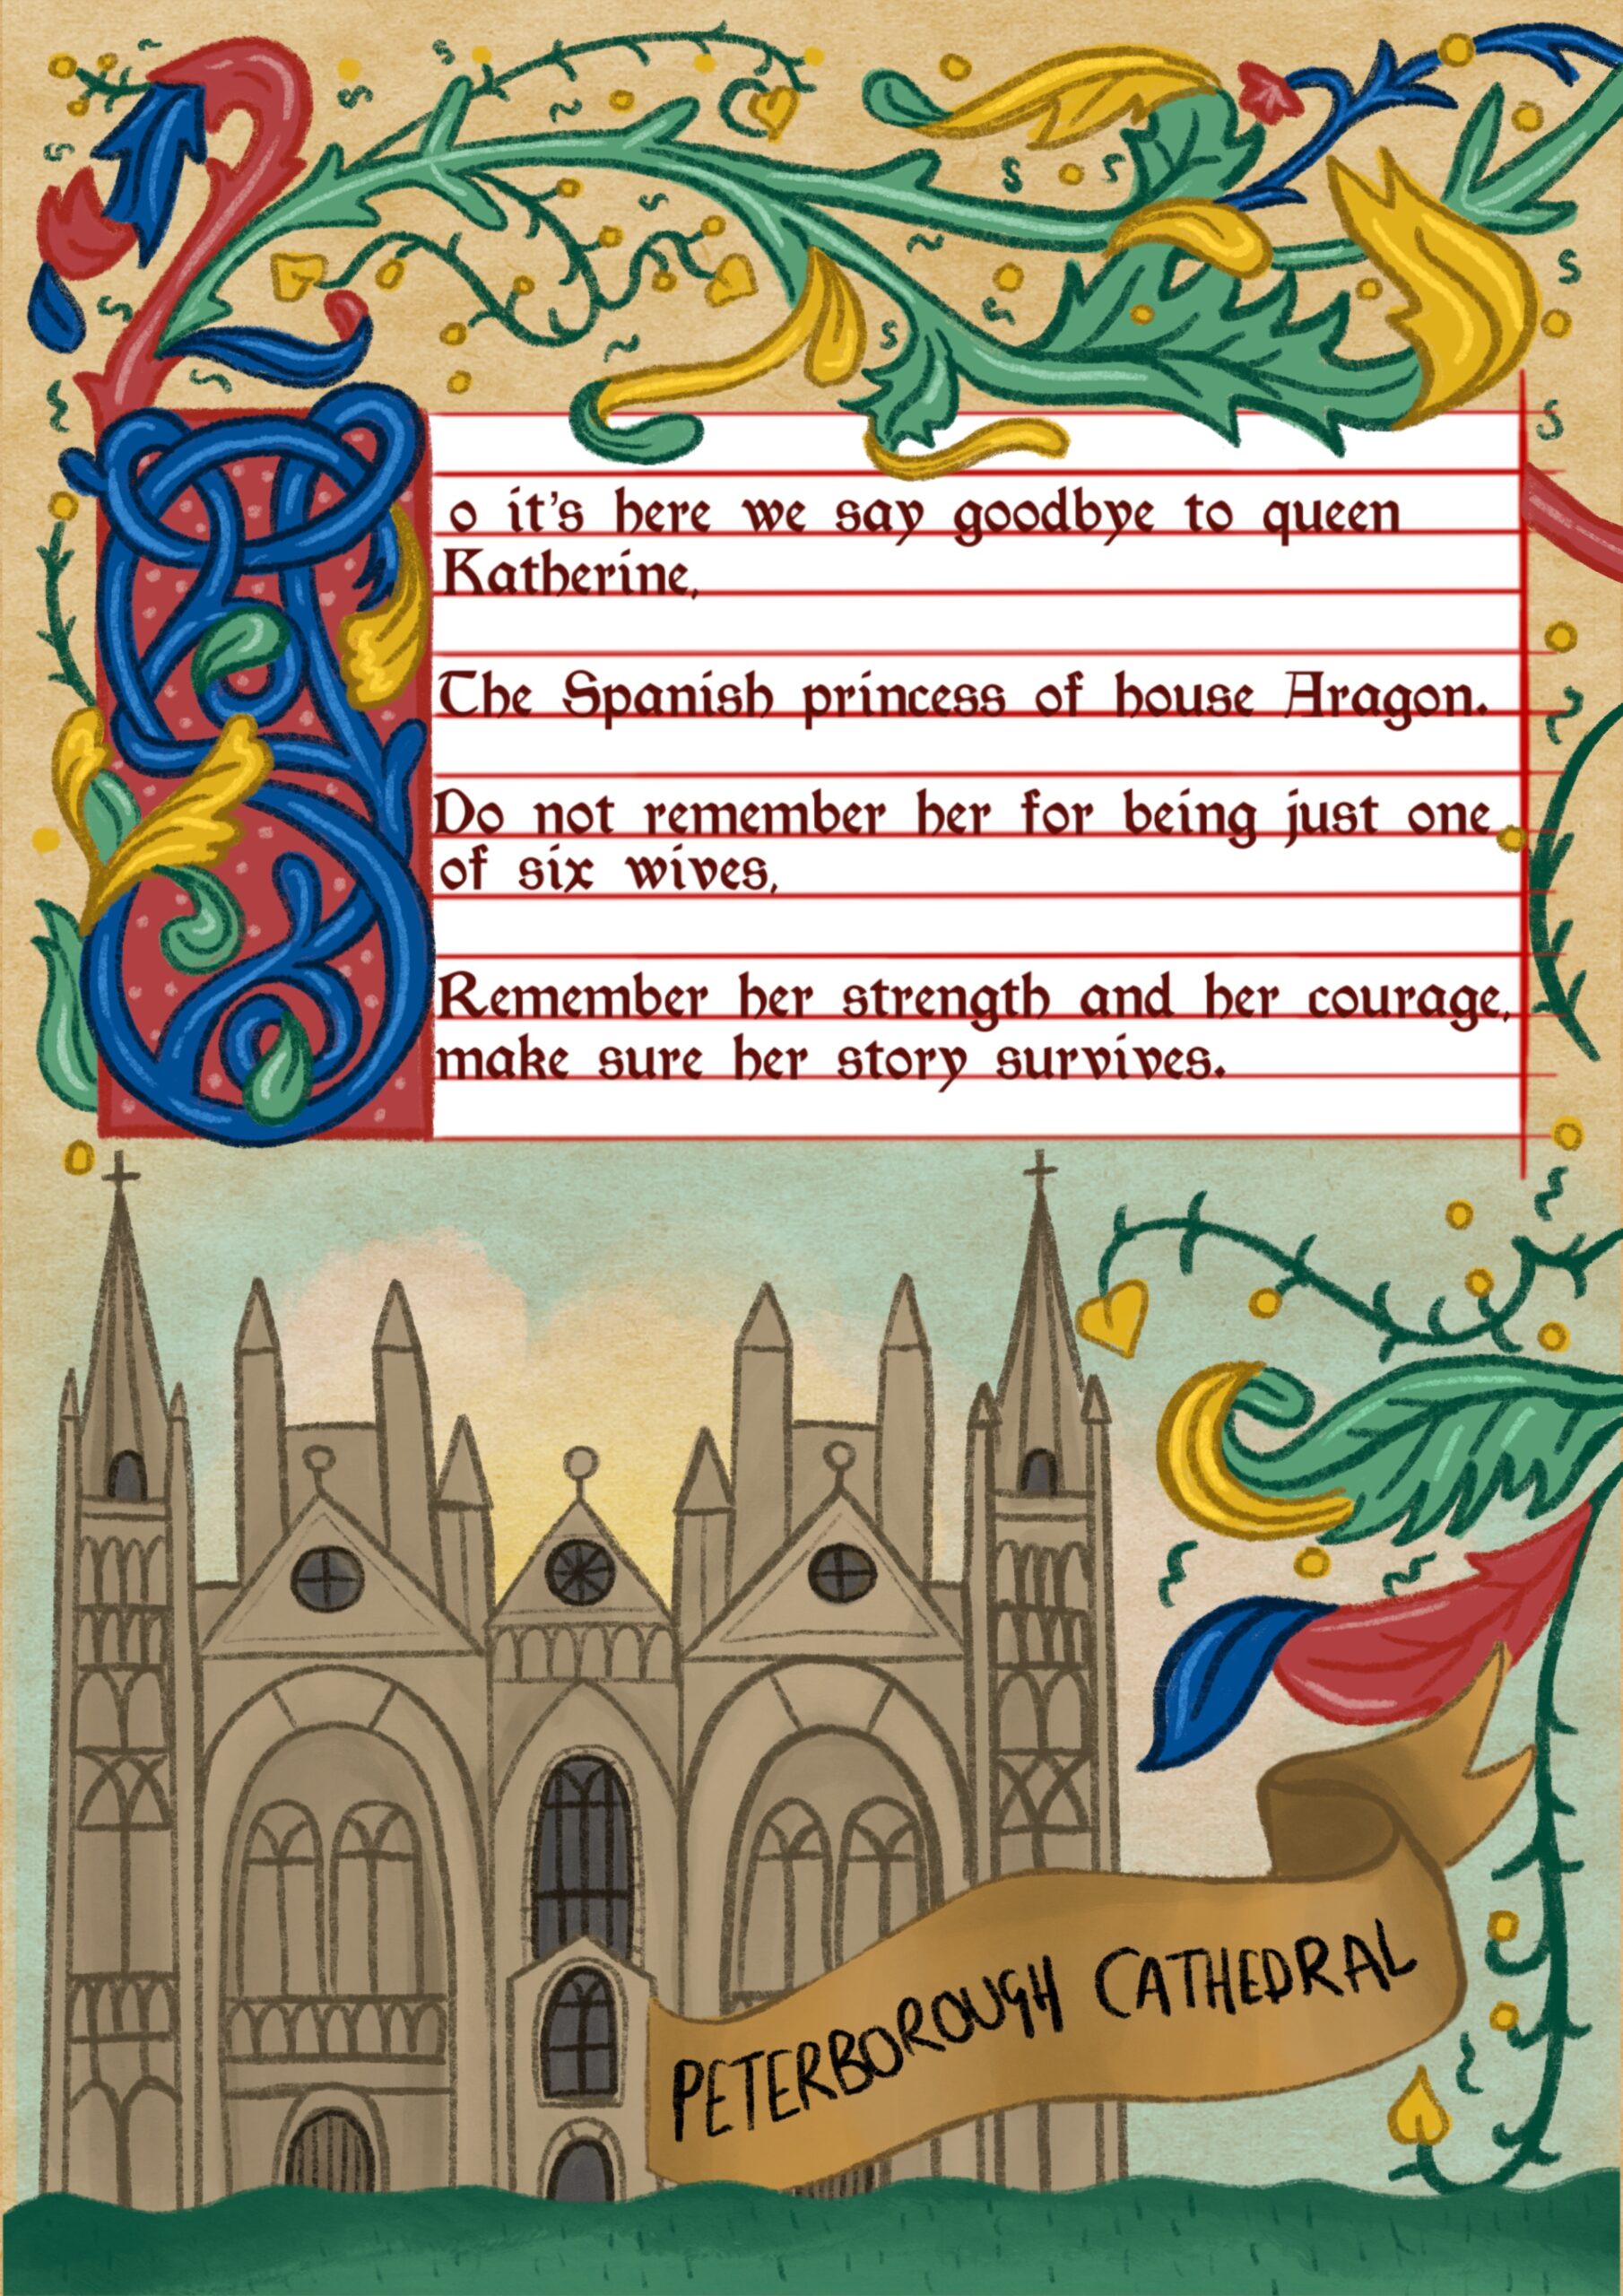 So it's here we say goodbye to queen
Katherine,
The Spanish princess of house Aragon.
Do not remember her for being just one
of six wives,
Remember her strength and her courage,
make sure her story survives.
PETERBOROUGH CATHEDRAL